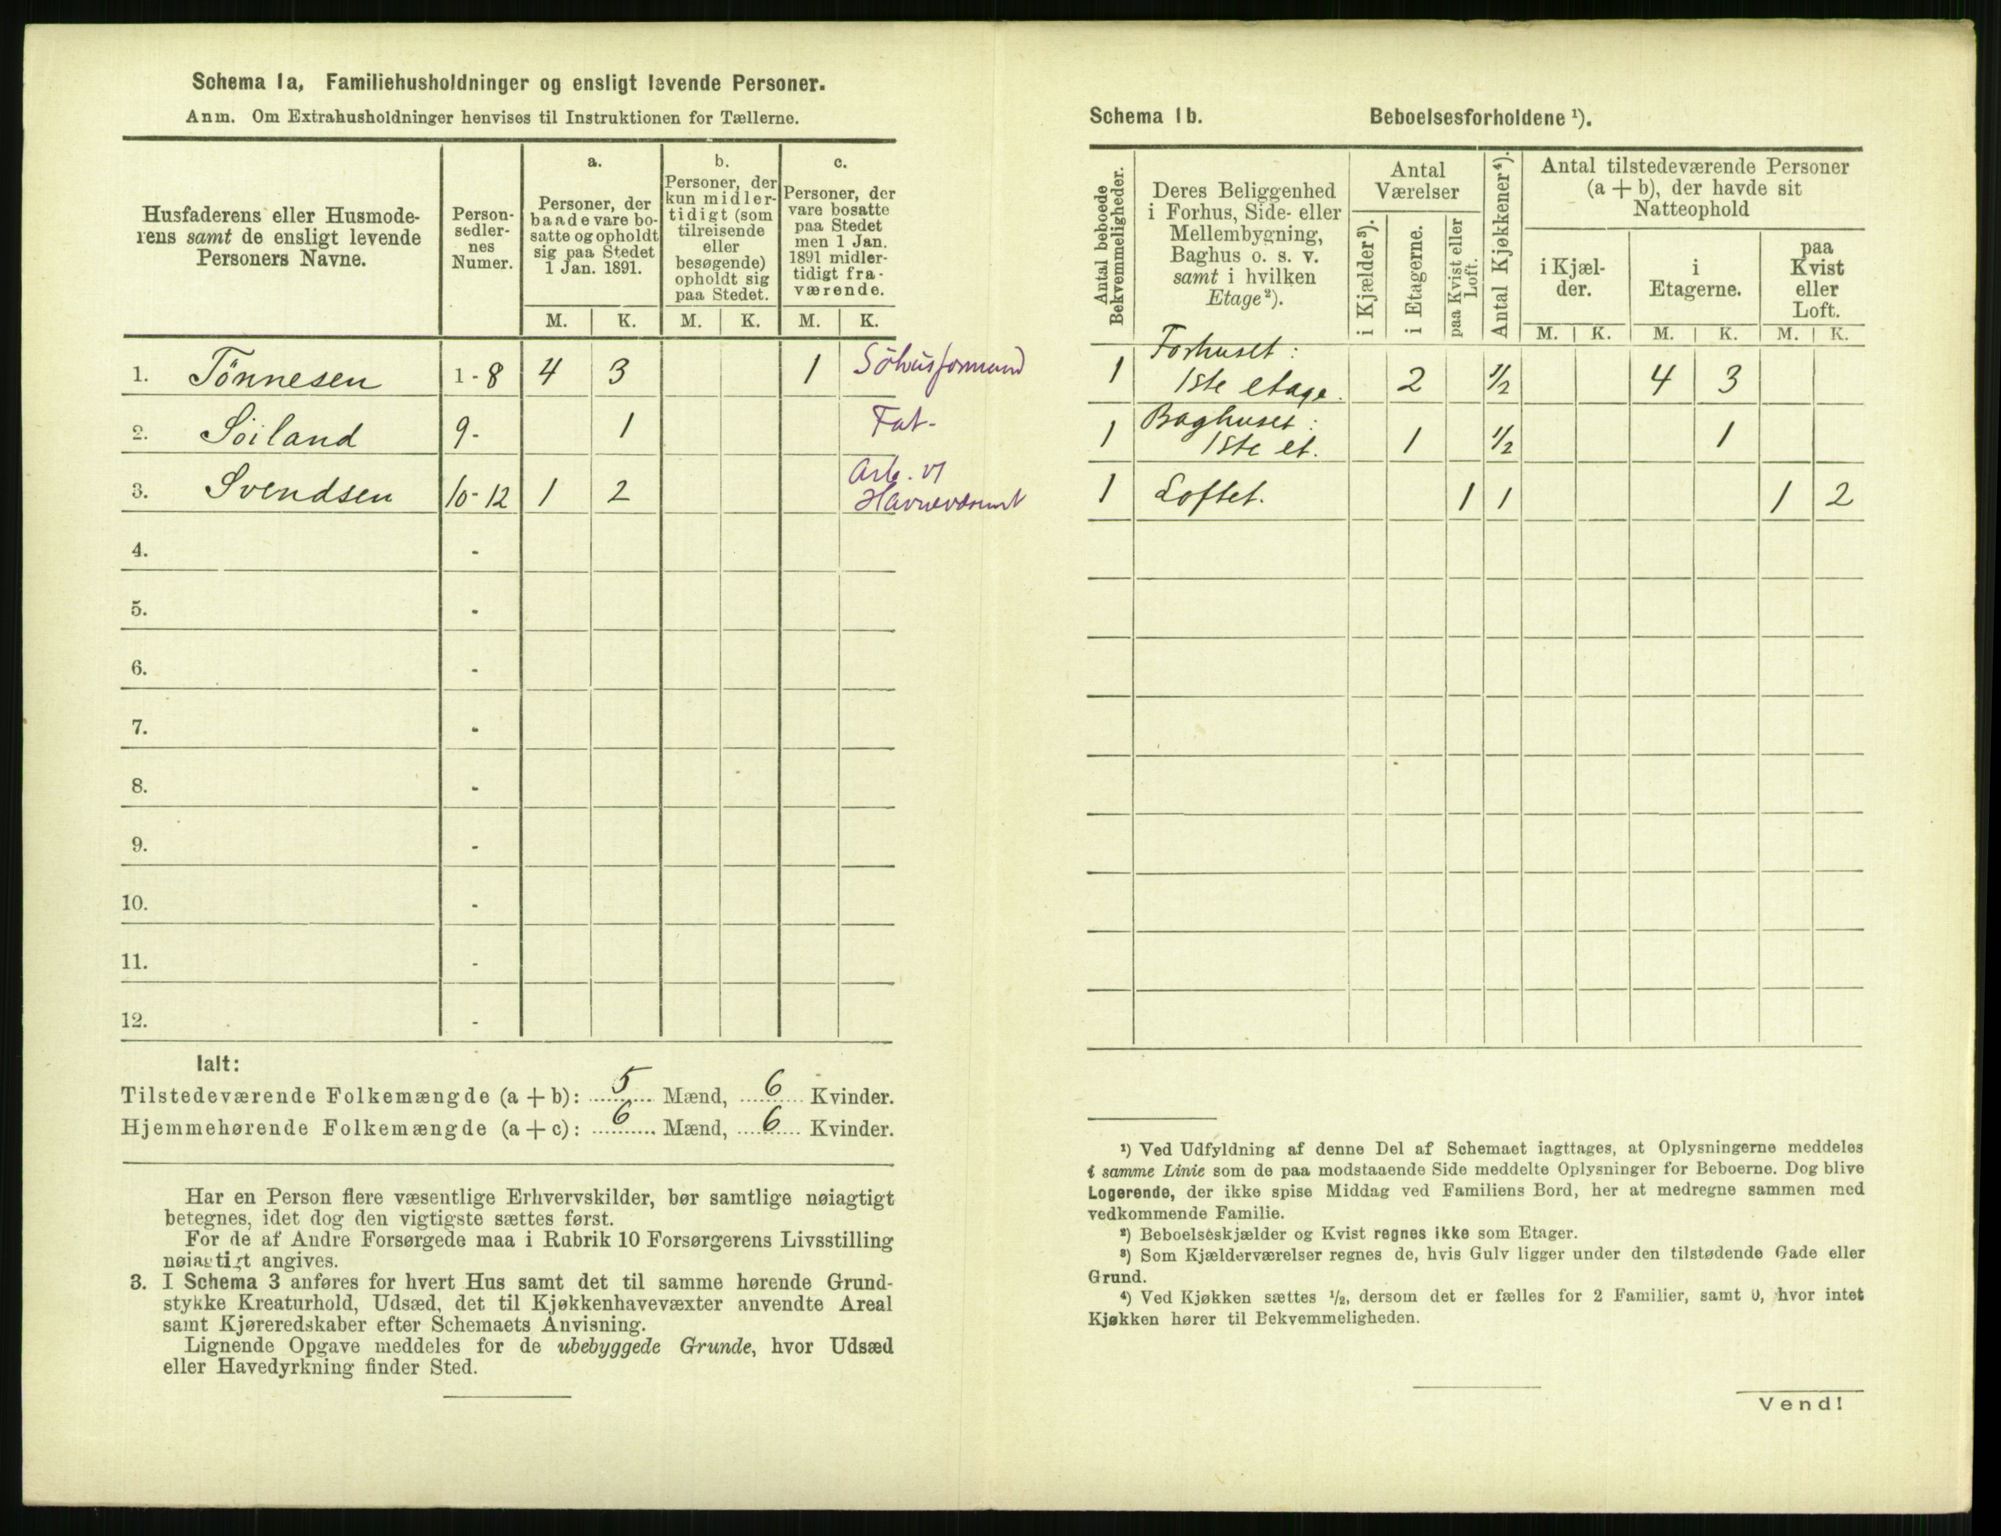 Schema 1a, Familiehusholdninger og ensligt levende Personer.
Anm. Om Extrahusholdninger henvises til Instruktionen for Tællerne.
Husfaderens eller Husmode-
rens samt de ensligt levende
Personers Navne.
Person-
sedler-
nes
Numer.
a.
Personer, der
baade vare bo-
satte og opholdt
sig paa Stedet
1 Jan. 1891.
b.
Personer, der
kun midler-
tidigt (som
tilreisende
eller
besøgende)
opholdt sig
paa Stedet.
c.
Personer, der
vare bosatte
paa Stedet
men 1 Jan.
1891 midler-
tidigt fra-
værende.
M. K. M. K. M. K.
1. Tönnesen 1-8 4 3 1
2. Söiland 9- 1 Fat-
3. Svendsen 10-12 1 2 Arb. v/
Havnevæsenet
4. -
5. -
6. -
7. -
8. -
9. -
10. -
11. -
12. -
Ialt:
Tilstedeværende Folkemængde (a + b): 5 Mænd, 6 Kvinder.
Hjemmehørende Folkemængde (a + c): 6 Mænd, 6 Kvinder.
Har en Person flere væsentlige Erhvervskilder, bør samtlige nøiagtigt
betegnes, idet dog den vigtigste sættes først.
For de af Andre Forsørgede maa i Rubrik 10 Forsørgerens Livsstilling
nøiagtigt angives.
3. I Schema 3 anføres for hvert Hus samt det til samme hørende Grund-
stykke Kreaturhold, Udsæd, det til Kjøkkenhavevæxter anvendte Areal
samt Kjøreredskaber efter Schemaets Anvisning.
Lignende Opgave meddeles for de ubebyggede Grunde, hvor Udsæd
eller Havedyrkning finder Sted.
Schema 1b. Beboelsesforholdene ¹).
Antal beboede
Bekvemmeligheder.
Deres Beliggenhed
i Forhus, Side- eller
Mellembygning,
Baghus o. s. v.
samt i hvilken
Etage ²).
Antal
Værelser
i Kjælder ³).
i Etagerne.
paa Kvist eller
Loft.
Antal Kjøkkener ⁴).
Antal tilstedeværende Personer
(a + b), der havde sit
Natteophold
i Kjæl-
der.
i
Etagerne.
paa
Kvist
eller
Loft.
M. K. M. K. M. K.
Forhuset:
1 1ste etage. 2 1/2 4 3
Baghuset:
1 1ste et. 1 1/2 1
1 Loftet. 1 1 1 2
¹) Ved Udfyldning af denne Del af Schemaet iagttages, at Oplysningerne meddeles
i samme Linie som de paa modstaaende Side meddelte Oplysninger for Beboerne. Dog blive
Logerende, der ikke spise Middag ved Familiens Bord, her at medregne sammen med
vedkommende Familie.
²) Beboelseskjælder og Kvist regnes ikke som Etager.
³) Som Kjælderværelser regnes de, hvis Gulv ligger under den tilstødende Gade eller
Grund.
⁴) Ved Kjøkken sættes 1/2, dersom det er fælles for 2 Familier, samt 0, hvor intet
Kjøkken hører til Bekvemmeligheden.
Vend!